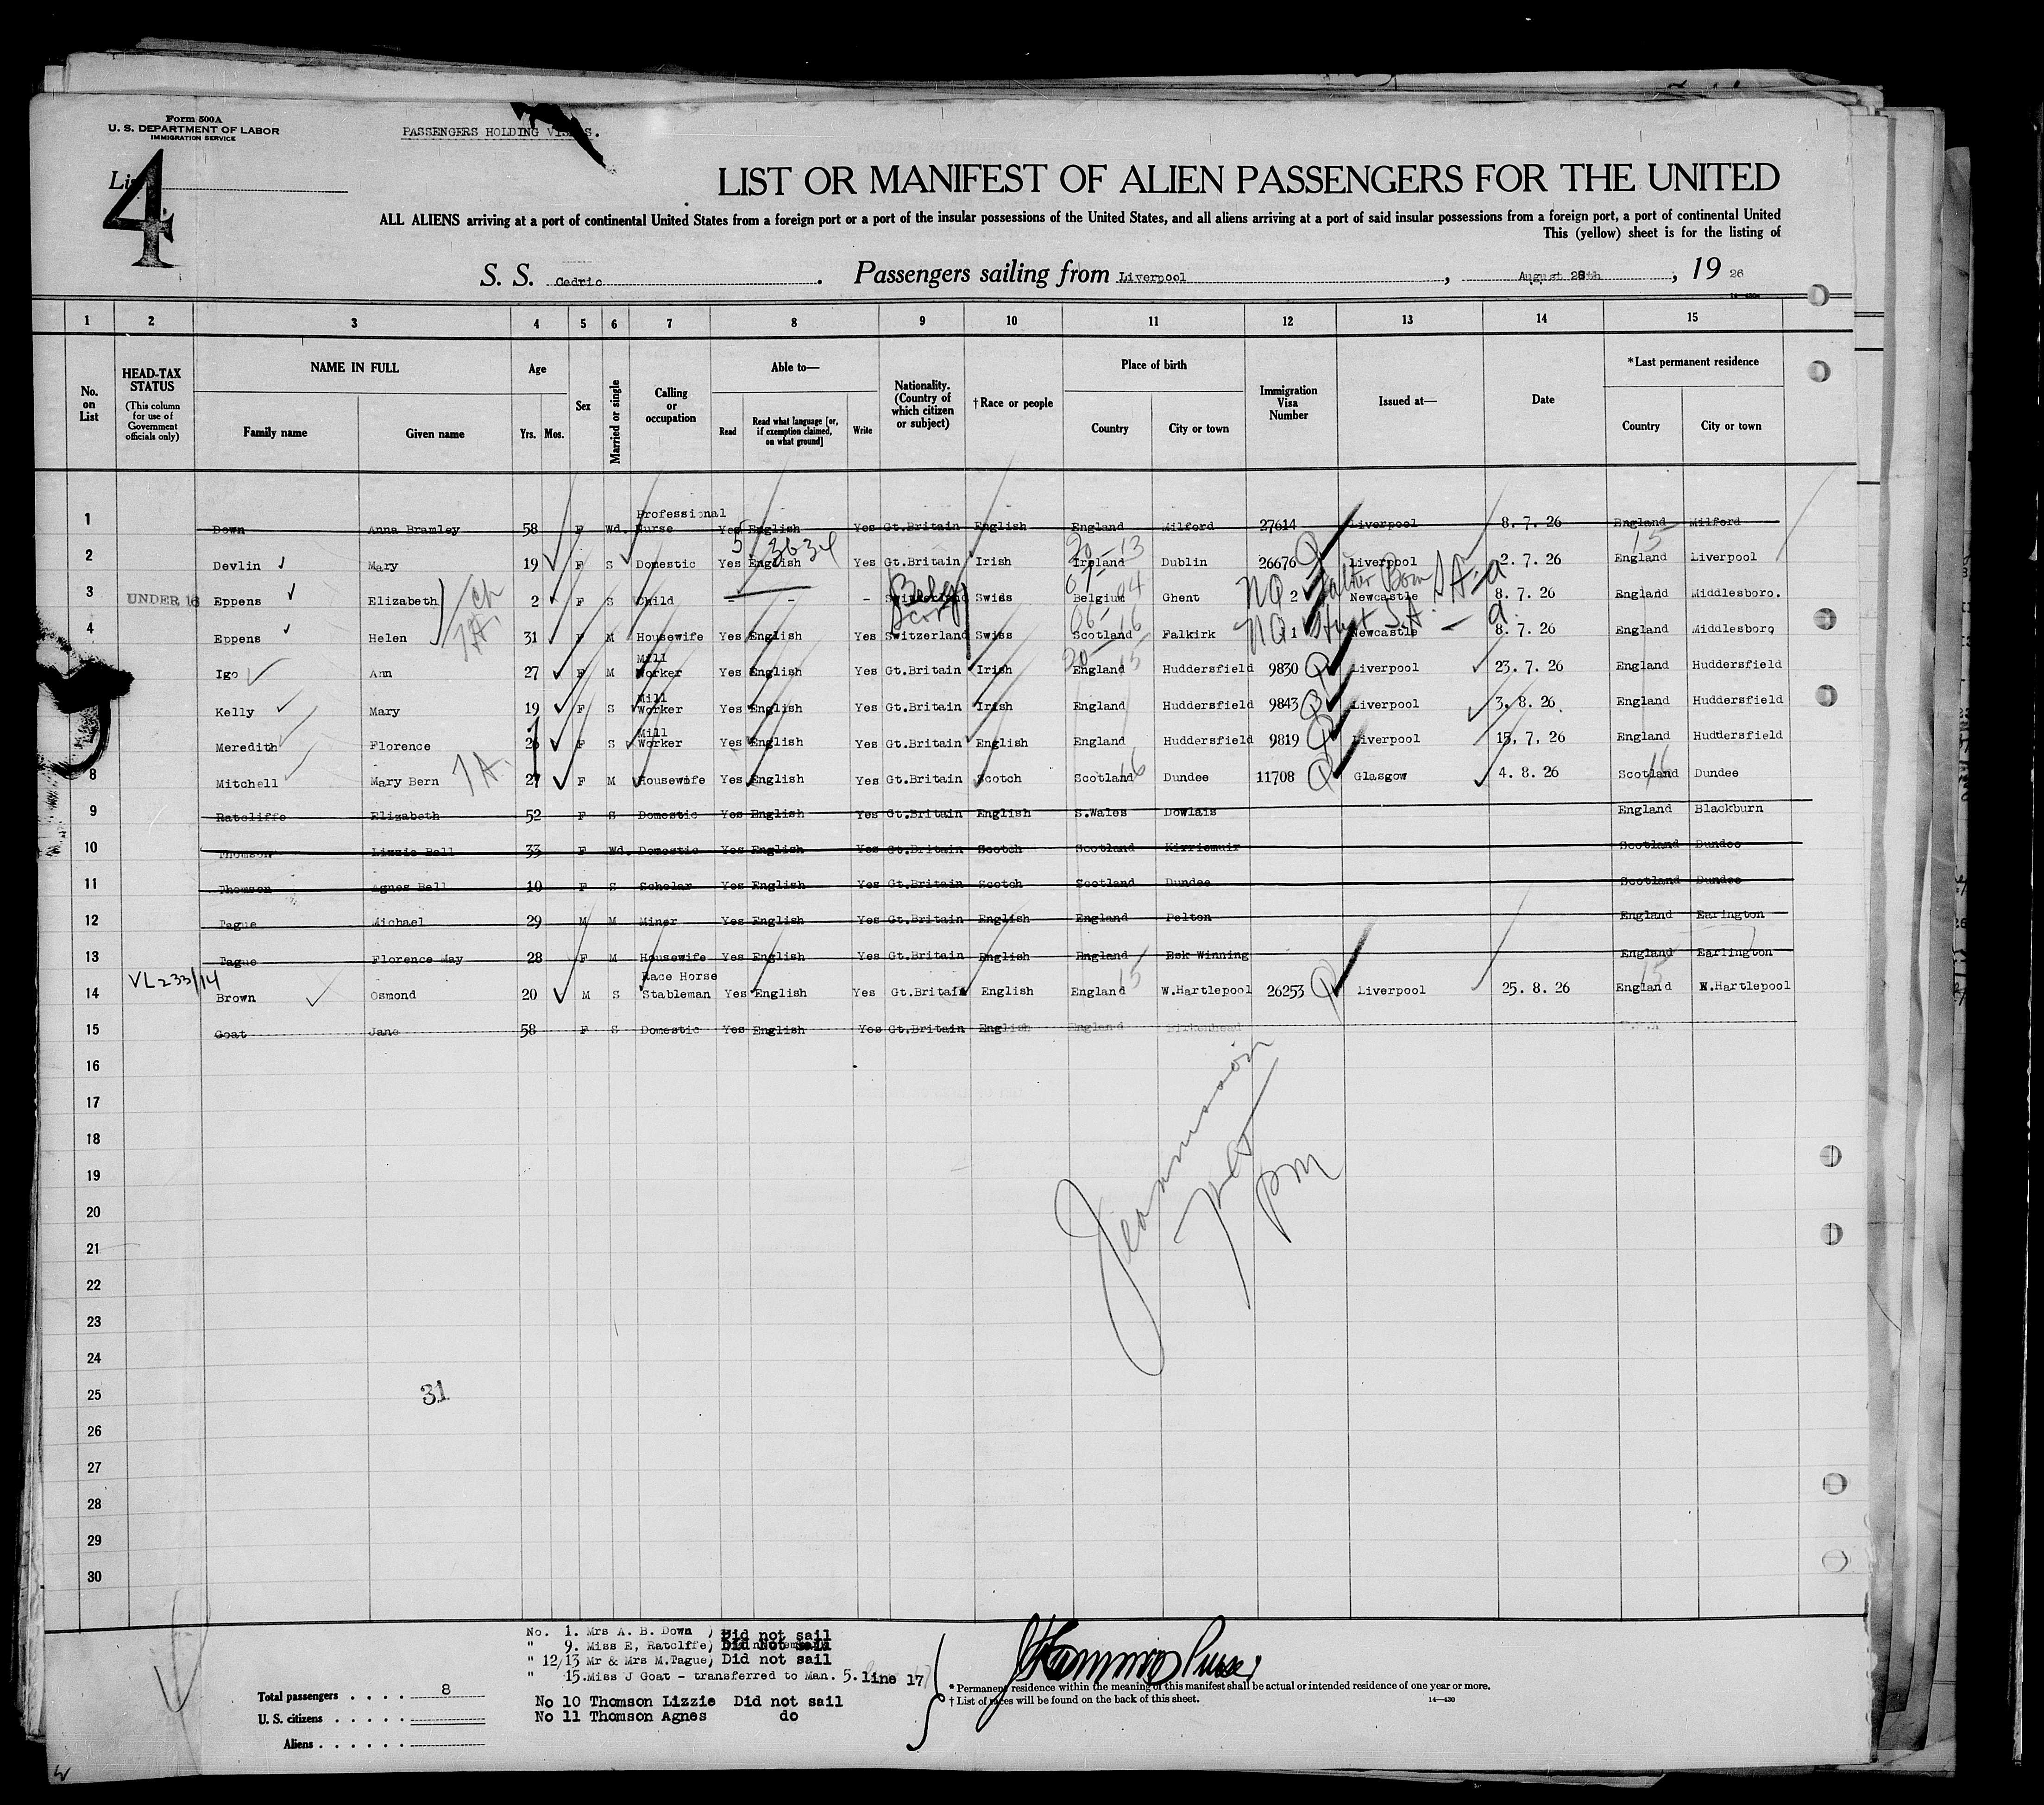 Form 500A
U. S. DEPARTMENT OF LABOR
IMMIGRATION SERVICE
PASSENGERS HOLDING VISAS.
List 4
LIST OR MANIFEST OF ALIEN PASSENGERS FOR THE UNITED
ALL ALIENS arriving at a port of continental United States from a foreign port or a port of the insular possessions of the United States, and all aliens arriving at a port of said insular possessions from a foreign port, a port of continental United
This (yellow) sheet is for the listing of
S. S. Cedric. Passengers sailing from Liverpool, August 28th, 1926
1 2 3 4 5 6 7 8 9 10 11 12 13 14 15
No. on List
HEAD-TAX STATUS (This column for use of Government officials only)
NAME IN FULL
Family name Given name
Age
Yrs. Mos.
Sex
Married or single
Calling or occupation
Able to—
Read Read what language [or, if exemption claimed, on what ground] Write
Nationality. (Country of which citizen or subject)
†Race or people
Place of birth
Country City or town
Immigration Visa Number
Issued at—
Date
*Last permanent residence
Country City or town
1 Down Anna Bramley 58 F Wd. Professional Nurse Yes English Yes Gt.Britain English England Milford 27614 Liverpool 8. 7. 26 England Milford
5 3634 20-13 15
2 Devlin Mary 19 F S Domestic Yes English Yes Gt.Britain Irish Ireland Dublin 26676 Q Liverpool 2. 7. 26 England Liverpool
3 UNDER 16 Eppens Elizabeth 2 F S Child - - - Switzerland Belg Swiss Belgium Ghent NQ 2 Newcastle 8. 7. 26 England Middlesboro.
4 Eppens Helen 31 F M Housewife Yes English Yes Switzerland Scot Swiss Scotland Falkirk NQ 1 Newcastle 8. 7. 26 England Middlesboro
Igo Ann 27 F M Mill Worker Yes English Yes Gt.Britain Irish England Huddersfield 9830 Q Liverpool 23. 7. 26 England Huddersfield
Kelly Mary 19 F S Mill Worker Yes English Yes Gt.Britain Irish England Huddersfield 9843 Q Liverpool 3. 8. 26 England Huddersfield
Meredith Florence 26 F S Mill Worker Yes English Yes Gt.Britain English England Huddersfield 9819 Q Liverpool 15. 7. 26 England Huddersfield
8 Mitchell Mary Bern 27 F M Housewife Yes English Yes Gt.Britain Scotch Scotland 16 Dundee 11708 Q Glasgow 4. 8. 26 Scotland 16 Dundee
9 Ratcliffe Elizabeth 52 F S Domestic Yes English Yes Gt.Britain English S.Wales Dowlais England Blackburn
10 Thomson Lizzie Bell 33 F Wd. Domestic Yes English Yes Gt.Britain Scotch Scotland Kirriemuir Scotland Dundee
11 Thomson Agnes Bell 10 F S Scholar Yes English Yes Gt.Britain Scotch Scotland Dundee Scotland Dundee
12 Tague Michael 29 M M Miner Yes English Yes Gt.Britain English England Pelton England Earington
13 Tague Florence May 28 F M Housewife Yes English Yes Gt.Britain English England Esk Winning England Earlington
VL233/14 15 15
14 Brown Osmond 20 M S Race Horse Stableman Yes English Yes Gt.Britain English England W.Hartlepool 26253 Q Liverpool 25. 8. 26 England W.Hartlepool
15 Goat Jane 58 F S Domestic Yes English Yes Gt.Britain English England Birkenhead
16
17
18
19
20
21
22
23
24
25 31
26
27
28
29
30
No. 1. Mrs A. B. Down ) Did not sail
" 9. Miss E, Ratclffe) Did not sail
" 12/13 Mr & Mrs M.Tague) Did not sail
" 15.Miss J Goat - transferred to Man. 5. line 17
No 10 Thomson Lizzie Did not sail
No 11 Thomson Agnes do
Total passengers . . . . 8
U. S. citizens . . . . .
Aliens . . . . . .
* Permanent residence within the meaning of this manifest shall be actual or intended residence of one year or more.
† List of races will be found on the back of this sheet.
14—430